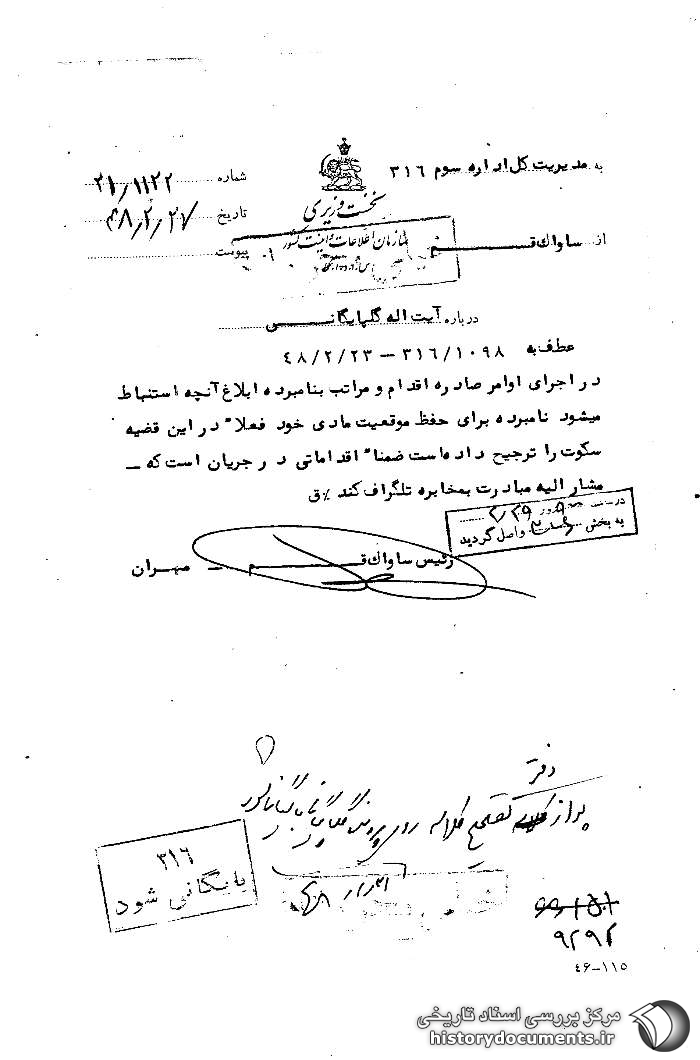 به مدیریت کل اداره سوم ۳۱۶
شماره ۲۱/۱۱۲۲
نخست وزیری
تاریخ ۴۸/۲/۲۷
سازمان اطلاعات و امنیت کشور
از ساواك قم
پیوست
درباره آیت اله گلپایگانی
عطف به ۳۱۶/۱۰۹۸ – ۴۸/۲/۲۳
در اجرای اوامر صادره اقدام و مراتب بنامبرده ابلاغ آنچه استنباط
میشود نامبرده برای حفظ موقعیت مادی خود فعلا" در این قضیه
سکوت را ترجیح داده است ضمنا" اقداماتی در جریان است که –
مشار الیه مبادرت بمخابره تلگراف کند %ق
۲/۲۹
به بخش واصل گردید
رئیس ساواك قم – مهران
دفتر
پس از تصحیح کلاسه روی پرونده گلپایگانی
۳۱۶
بایگانی شود
۹۲۹۲
٤٦-١١٥
مرکز بررسی اسناد تاریخی
historydocuments.ir